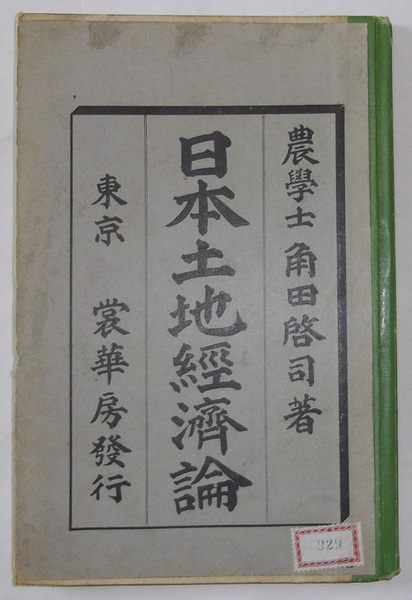 農學士 角田啓司著
日本土地經濟論
東京 裳華房發行
329